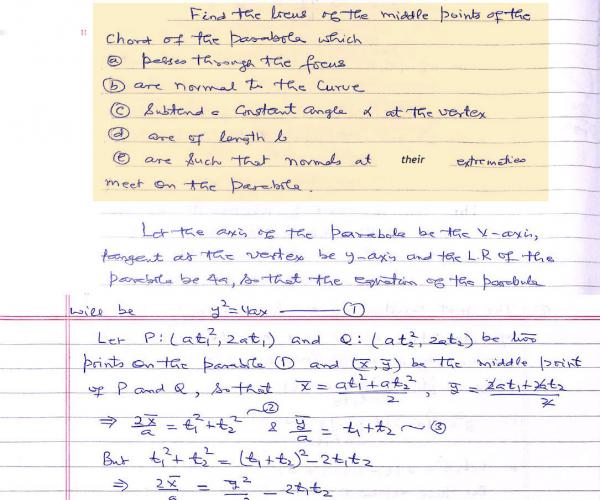 Find the locus of the middle points of the
Chord of the parabola which
(a) passes through the focus
(b) are normal to the curve
(c) Subtend a Constant angle α at the vertex
(d) are of length l
(e) are such that normals at their extremeties
meet on the parabola.
Let the axis of the parabola be the X-axis,
tangent at the vertex be y-axis and the L.R of the
parabola be 4a, so that the equation of the parabola
will be y²=4ax —— (1)
Let P:(at₁², 2at₁) and Q:(at₂², 2at₂) be two
points on the parabola (1) and (x̅, y̅) be the middle point
of P and Q, so that x̅ = (at₁²+at₂²)/2, y̅ = (2at₁+2at₂)/2
⇒ 2x̅/a = t₁²+t₂² ~(2) & y̅/a = t₁+t₂ ~(3)
But t₁²+t₂² = (t₁+t₂)²-2t₁t₂
⇒ 2x̅/a = y̅²/a² - 2t₁t₂